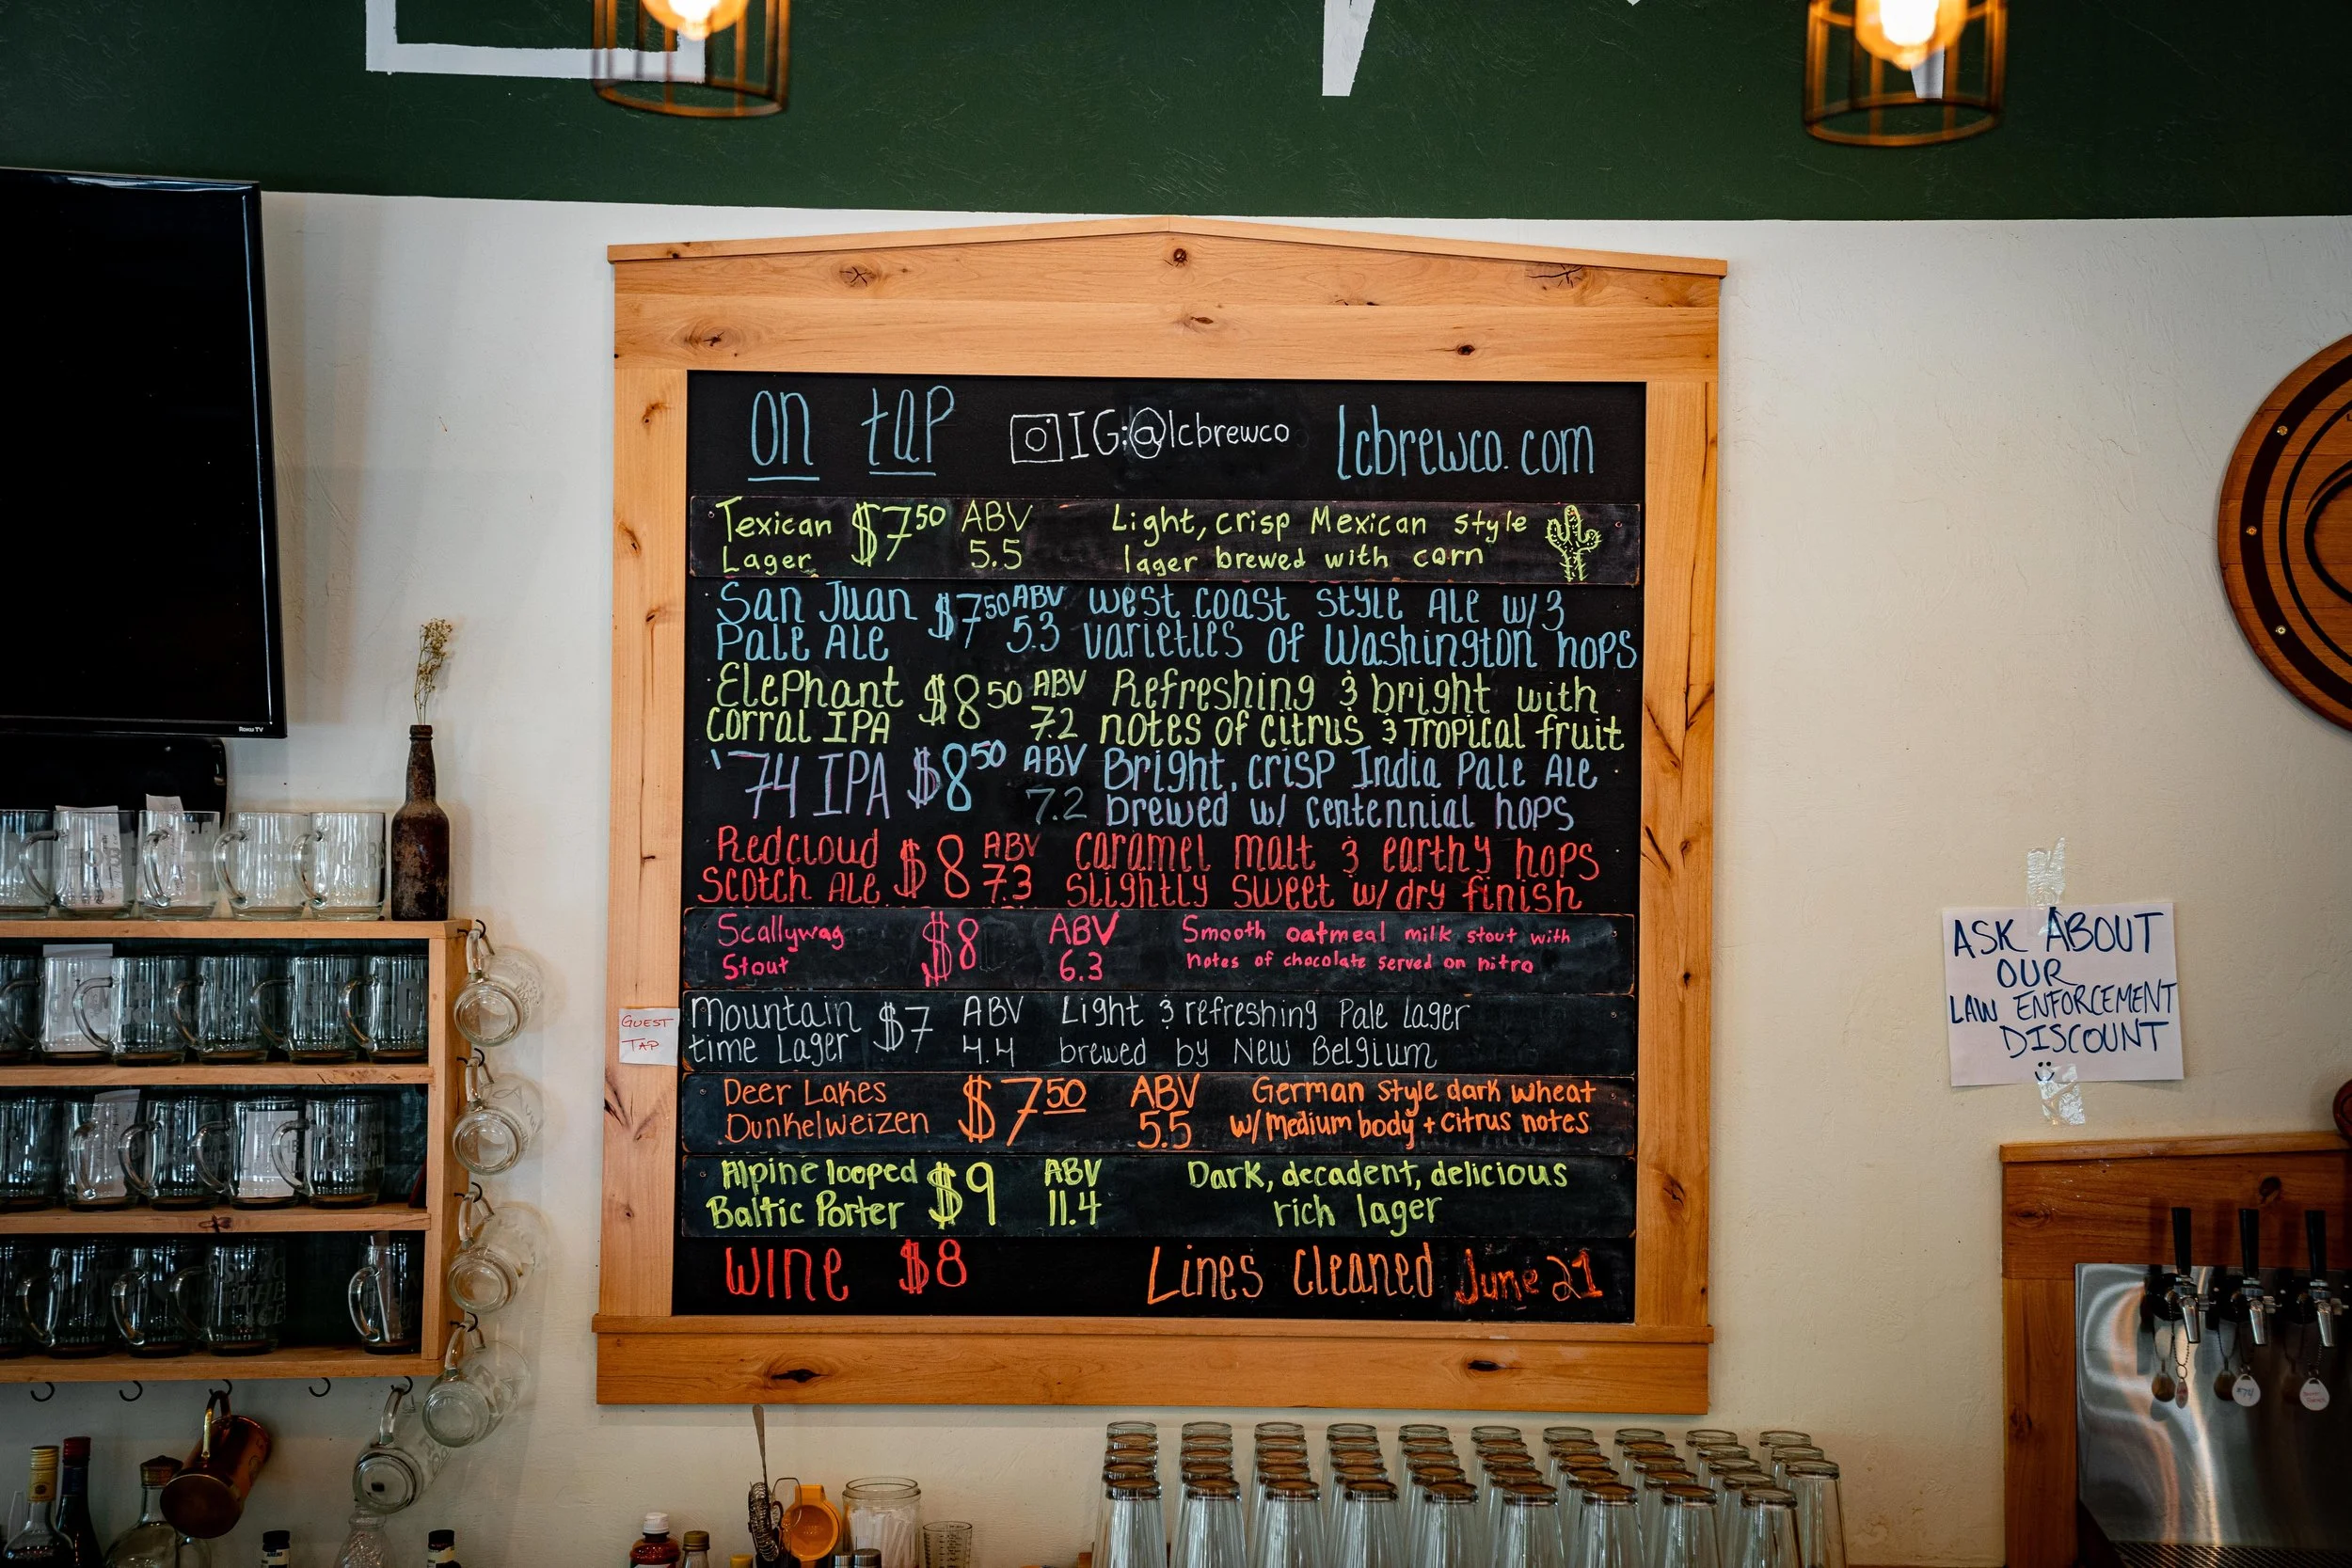 on tap
IG:@lcbrewco
lcbrewco.com
Texican $7.50 ABV Light, crisp Mexican style
Lager 5.5 lager brewed with corn
San Juan $7.50 ABV west coast style Ale w/3
Pale Ale 5.3 varieties of Washington hops
Elephant $8.50 ABV Refreshing & bright with
Corral IPA 7.2 notes of citrus & Tropical fruit
'74 IPA $8.50 ABV Bright, crisp India Pale Ale
7.2 brewed w/ centennial hops
Redcloud $8 ABV caramel malt & earthy hops
Scotch Ale 7.3 slightly sweet w/ dry finish
Scallywag $8 ABV Smooth oatmeal milk stout with
Stout 6.3 notes of chocolate served on nitro
GUEST
TAP
Mountain $7 ABV Light & refreshing Pale Lager
time Lager 4.4 brewed by New Belgium
Deer Lakes $7.50 ABV German Style dark wheat
Dunkelweizen 5.5 w/ Medium body + Citrus notes
Alpine looped $9 ABV Dark, decadent, delicious
Baltic Porter 11.4 rich lager
Wine $8 Lines Cleaned June 21
ASK ABOUT
OUR
LAW ENFORCEMENT
DISCOUNT
Roku TV